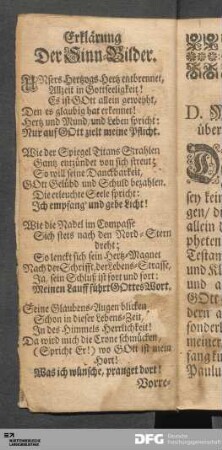 Erklärung
Der Sinn-Bilder.
UNsers Hertzogs Hertz entbrennet,
Allzeit in Gottseeligkeit!
Es ist GOtt allein geweyht,
Den es glaubig hat erkennet!
Hertz und Mund, und Leben spricht:
Nur auf GOtt zielt meine Pflicht.
Wie der Spiegel Titans Strahlen
Gantz entzündet von sich streut;
So will seine Danckbarkeit,
GOtt Gelübd und Schuld bezahlen.
Die erleuchte Seele spricht:
Ich empfang' und gebe Licht!
Wie die Nadel im Compasse
Sich stets nach den Nord-Stern
dreht;
So lenckt sich sein Hertz-Magnet
Nach der Schrifft, der Lebens-Strasse,
Ja, sein Schluß ist fort und fort:
Meinen Lauff führt GOttes Wort.
Seine Glaubens-Augen blicken
Schon in dieser Lebens-Zeit,
In des Himmels Herrlichkeit!
Da wird mich die Crone schmücken,
(Spricht Er!) wo GOtt ist mein
Hort!
Was ich wünsche, pranget dort!
Vorre-
D.
über
sey kein
gen/
allein
pheten
Testam
und Kl
und
GO
dern a
sonder
meiner
fang
Paulu
DFG
Deutsche
Forschungsgemeinschaft